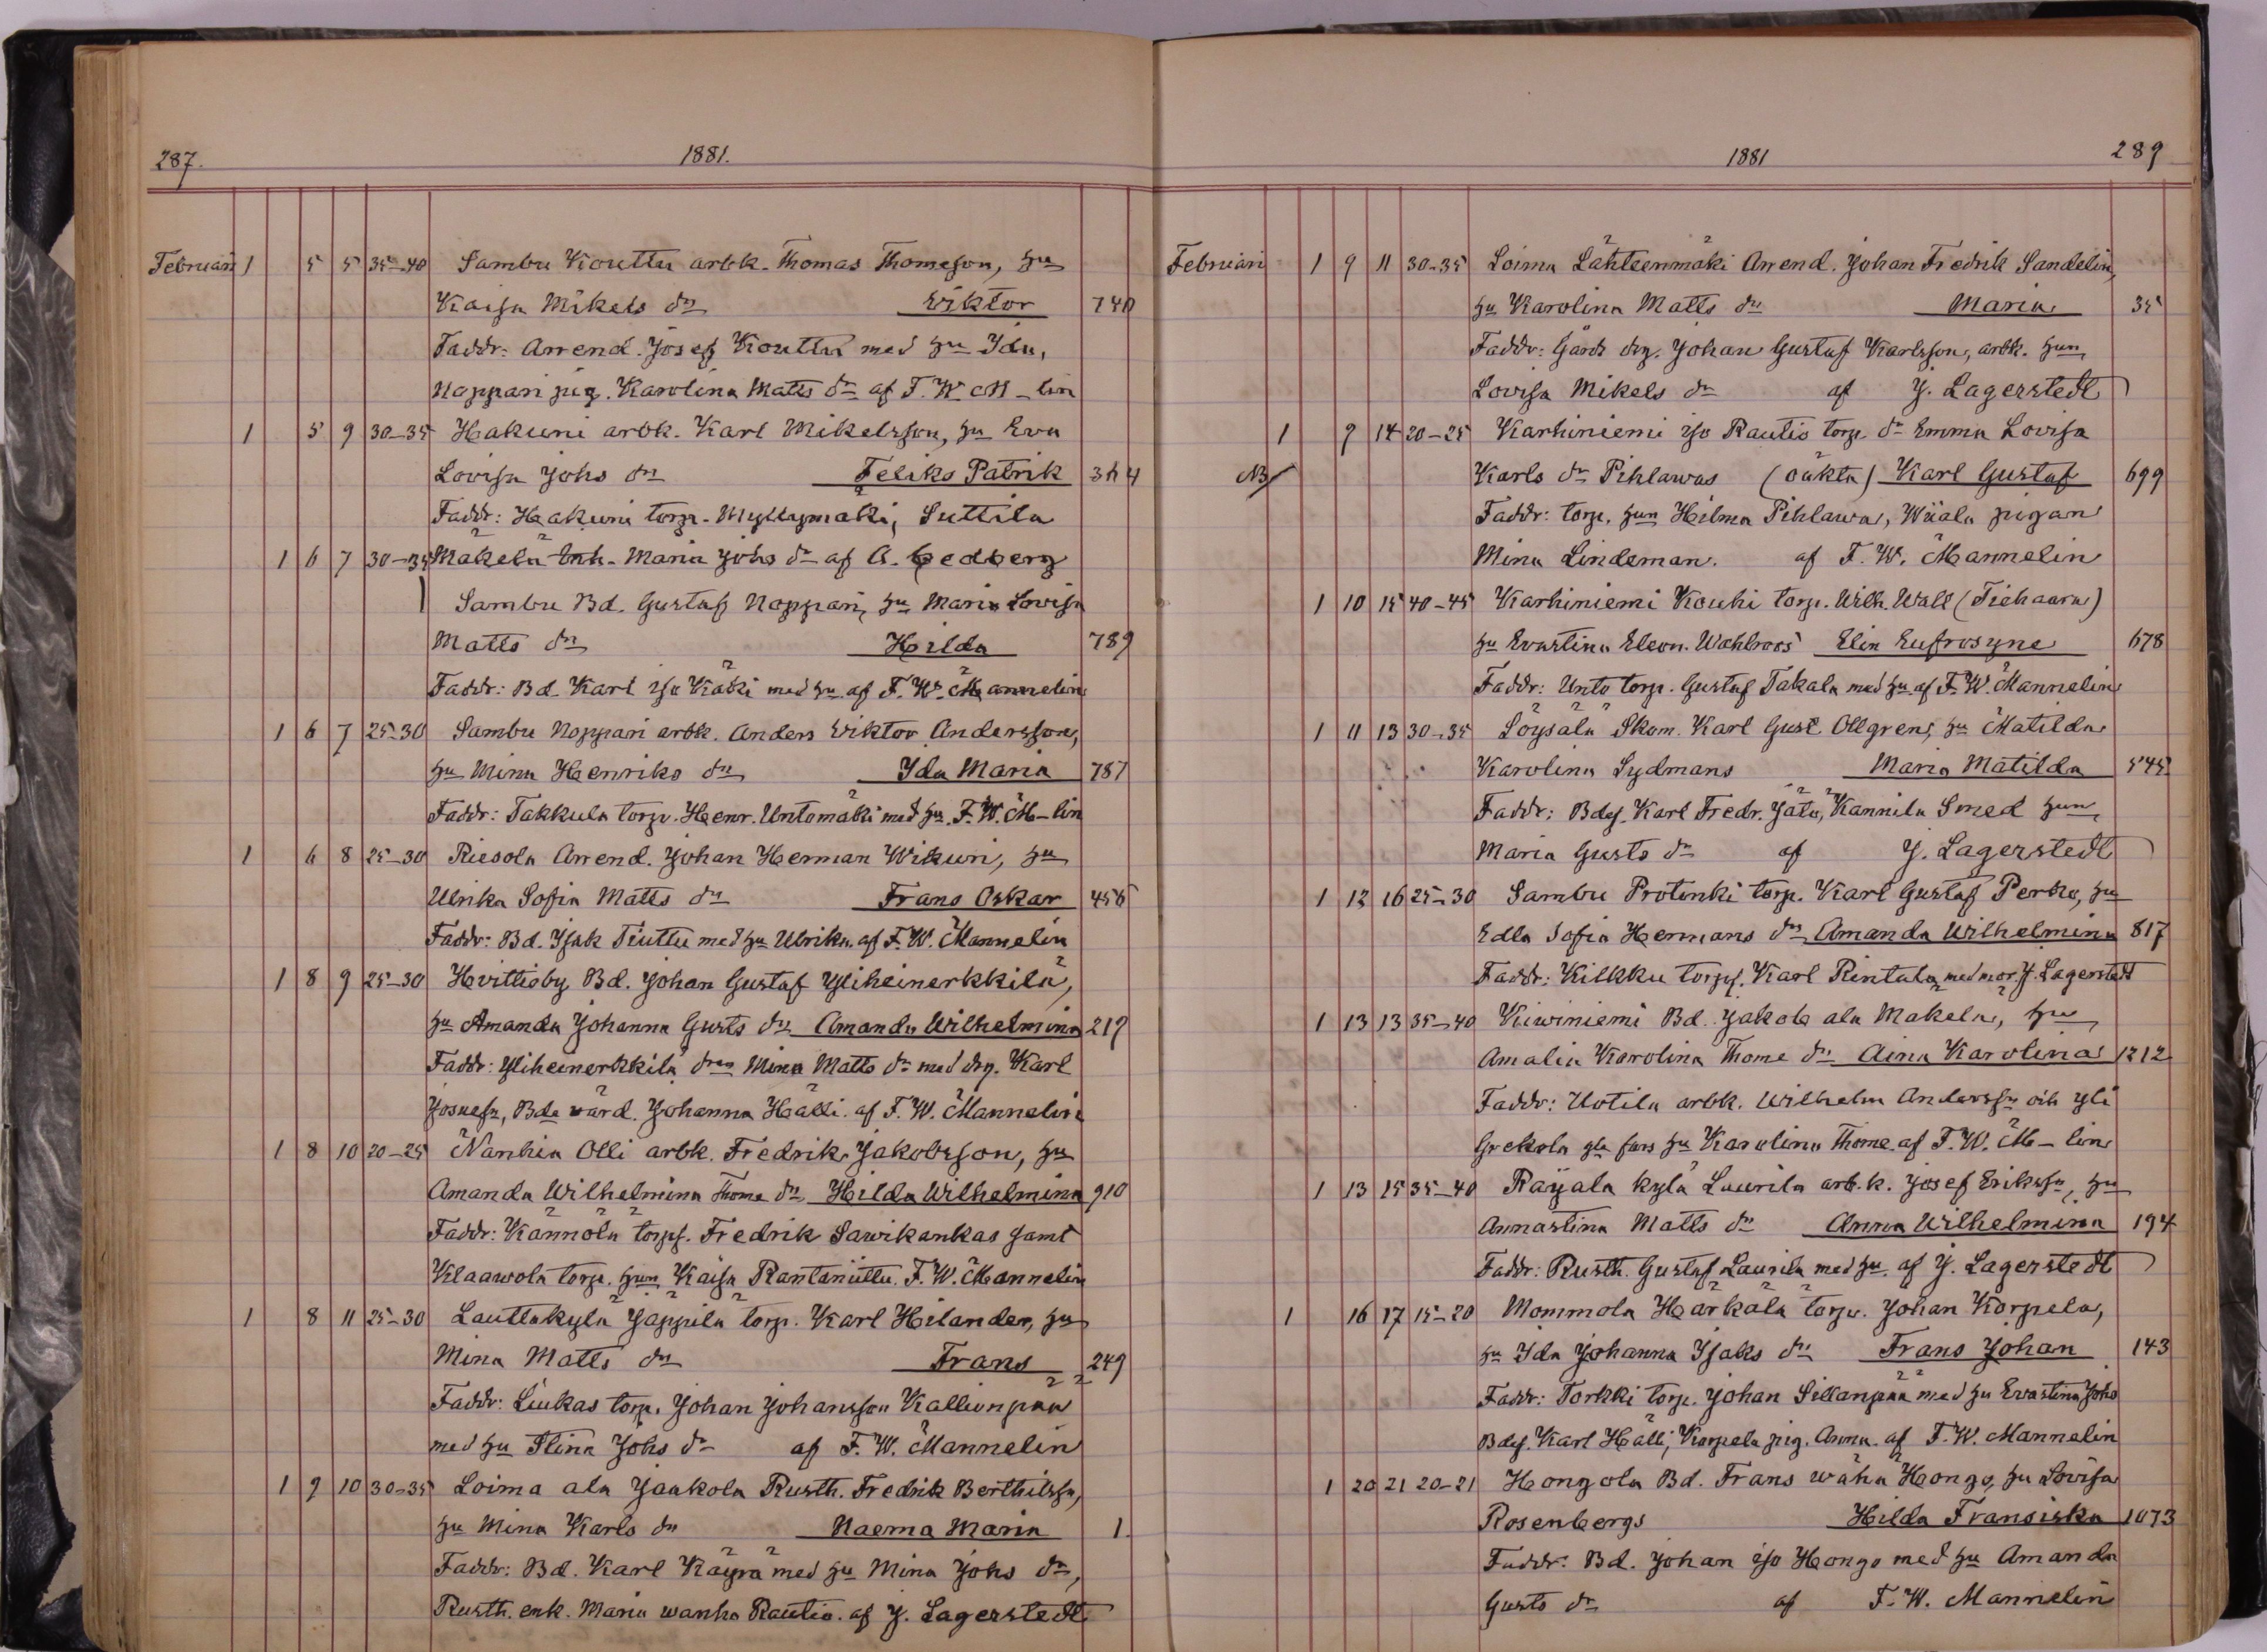 287. 1881.
Februari 1 5 5 35-40 Sambu Kouttu arbk. Thomas Thomeson, hu
Kaisa Mikels dr Viktor 740
Faddr: Arrend. Josef Kouttu med hu Ida,
Noppari pig. Karolina Matts dr af F. W. M-lin
1 5 9 30-35 Hakuni arbk. Karl Mikelsson, hu Eva
Lovisa Johs dr Feliks Patrik 364
Faddr: Hakuni torp. Myllymäki, Suttila
Mäkelä Enk. Maria Johs dr af A. Cedberg
1 6 7 30-35 Sambu Bd. Gustaf Noppari, hu Maria Lovisa
Matts dr Hilda 789
Faddr: Bd. Karl iso Käski med hu af F. W. Mannelin
1 6 7 25-30 Sambu Noppari arbk. Anders Viktor Andersson,
hu Mina Henriks dr Ida Maria 787
Faddr: Takkula torp. Henr. Untomäki med hu. F. W. M-lin
1 6 8 25-30 Riesola Arrend. Johan Herman Wikuri, hu
Ulrika Sofia Matts dr Frans Oskar 456
Faddr: Bd. Isak Tiuttu med hu Ulrika af F. W. Mannelin
1 8 9 25-30 Hvittisby Bd. Johan Gustaf Yliheinerkkilä,
hu Amanda Johanna Gusts dr Amanda Wilhelmina 219
Faddr: Yliheinerkkilä drn Mina Matts dr med drg. Karl
Josuesn, Bda värd. Johanna Hälli. af F. W. Mannelin
1 8 10 20-25 Nanhia Olli arbk. Fredrik Jakobsson, hu
Amanda Wilhelmina Thome dr Hilda Wilhelmina 910
Faddr: Kännölä torps. Fredrik Sawikankas samt
Klaawola torp. hun Kaisa Rantaniittu. F. W. Mannelin
1 8 11 25-30 Lauttakylä Jäppilä torp. Karl Hilander, hu
Mina Matts dr Frans 249
Faddr: Liukas torp. Johan Johansson Kallionpää
med hu Stina Johs dr af F. W. Mannelin
1 9 10 30-35 Loima ala Jaakola Rusth. Fredrik Berthilssn,
hu Mina Karls dr Naema Maria 1.
Faddr: Bd. Karl Käyrä med hu Mina Johs dr,
Rusth. enk. Maria wanha Rautio. af J. Lagerstedt
1881 289
Februari 1 9 11 30-35 Loima Lähteenmäki Arrend. Johan Fredrik Sandelin,
hu Karolina Matts dr Maria 35
Faddr: Gårds drg. Johan Gustaf Karlsson, arbk. hun
Lovisa Mikels dr af J. Lagerstedt
1 9 14 20-25 Karhiniemi iso Rautio torp. dr Emma Lovisa
NB Karls dr Pihlawas (oäkta) Karl Gustaf 699
Faddr: torp. hun Hilma Pihlawa, Wiiala pigan
Mina Lindeman. af F. W. Mannelin
1 10 15 40-45 Karhiniemi Kouhi torp. Wilh. Wall (Tiehaara)
hu Evastina Eleon. Wahlroos Elin Eufrosyne 678
Faddr: Unto torp. Gustaf Takala med hu af F. W. Mannelin
1 11 13 30-35 Löysälä Skom. Karl Gust Ollgren, hu Matilda
Karolina Sydmans Maria Matilda 545
Faddr: Bdes. Karl Fredr. Jäts, Kannila Smed hun
Maria Gusts dr af J. Lagerstedt
1 12 16 25-30 Sambu Protinki torp. Karl Gustaf Perho, hu
Edla Sofia Hermans dr Amanda Wilhelmina 817
Faddr: Kilkku torps. Karl Rintala med mor. J. Lagerstedt
1 13 13 35-40 Kiwiniemi Bd. Jakob ala Mäkelä, hu
Amalia Karolina Thome dr Aina Karolina 1212
Faddr: Uotila arbk. Wilhelm Anderssn och yli
Grekola gla fars hu Karolina Thome. af F. W. M-lin
1 13 15 35-40 Raijala kylä Laurila arb.k. Josef Erikssn, hu
Annastina Matts dr Anna Wilhelmina 194
Faddr: Rusth. Gustaf Laurila med hu. af J. Lagerstedt
1 16 17 15-20 Mommola Härkälä torp. Johan Korpela,
hu Ida Johanna Isaks dr Frans Johan 143
Faddr: Torkki torp. Johan Sillanpää med hu Evastina Johs
Bdes. Karl Hälli, Korpela pig. Anna. af F. W. Mannelin
1 20 21 20-21 Hongola Bd. Frans wähä Hongo, hu Lovisa
Rosenbergs Hilda Fransiska 1073
Faddr: Bd. Johan iso Hongo med hu Amanda
Gusts dr af F. W. Mannelin